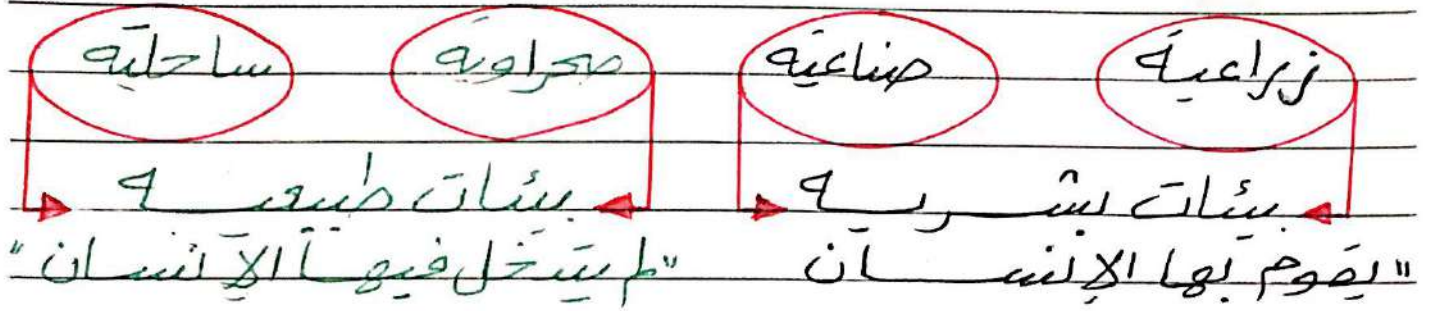 زراعية صناعية صحراوية ساحلية
بيئات بشرية بيئات طبيعية
"يقوم بها الإنسان "لم يتدخل فيها الإنسان"